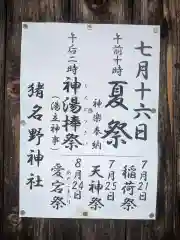 七月十六日
午前十時
夏祭
神楽奉納
午后二時
神湯捧祭
（湯立神事）
猪名野神社
7月21日
稲荷祭
7月25日
天神祭
8月24日
愛宕祭